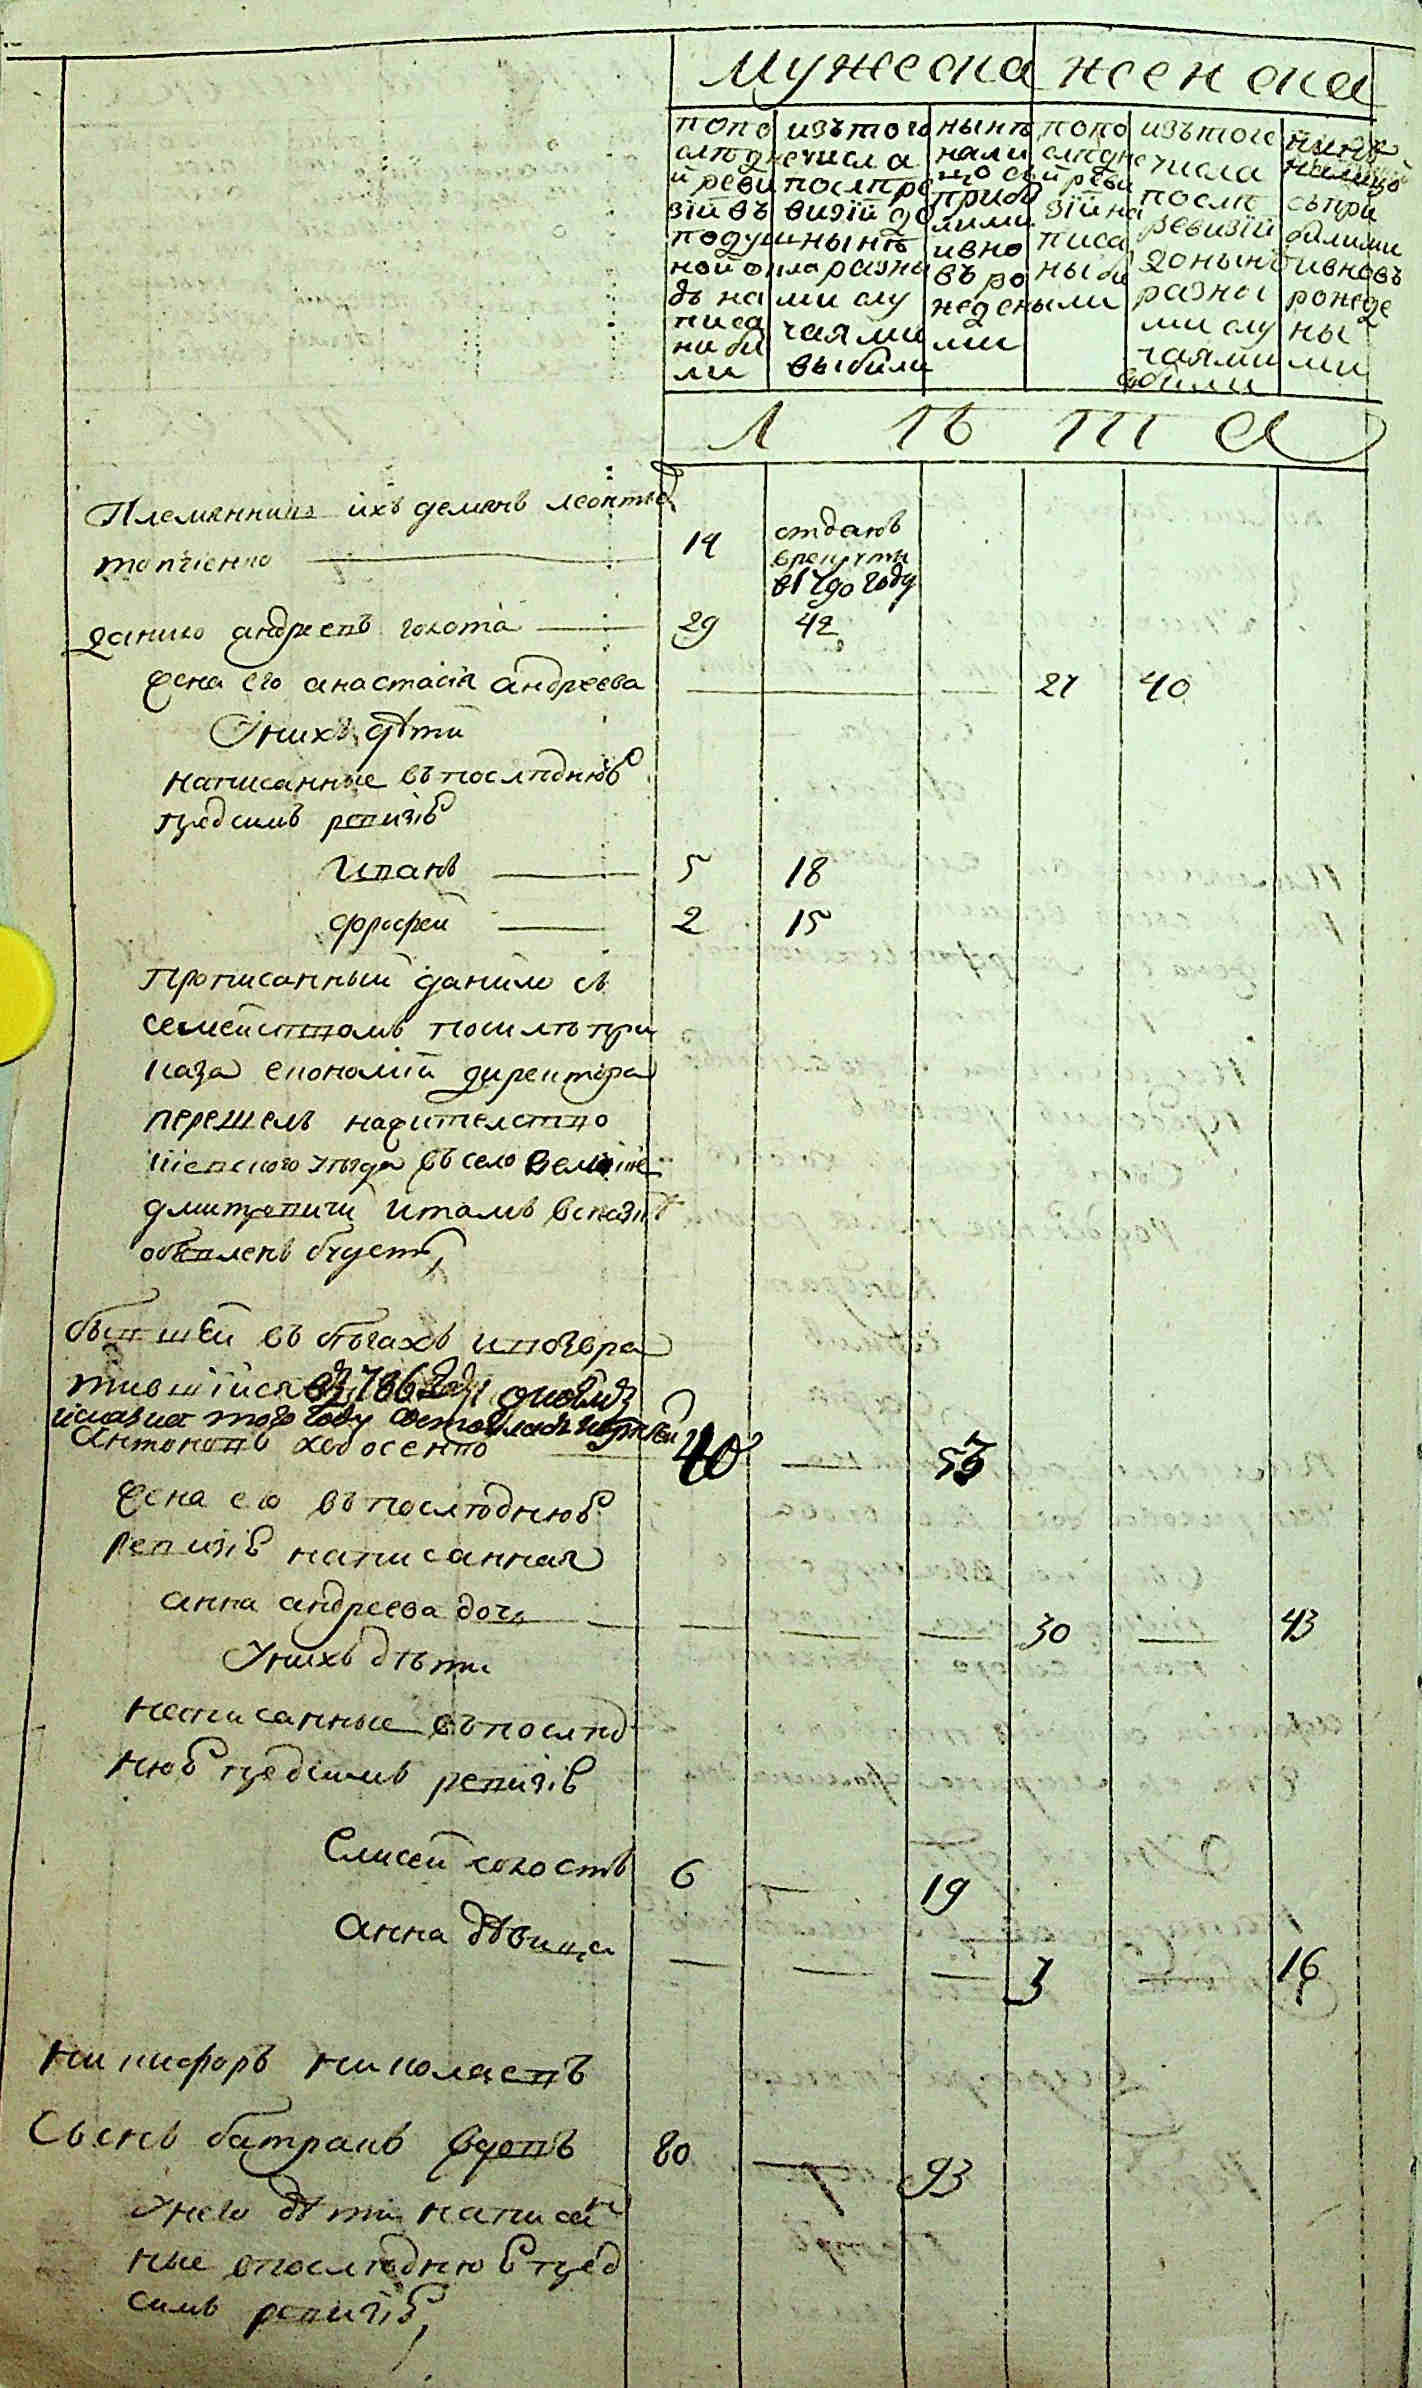 мужеска женска
попо
слѣдне
й реви
зїи въ
подуш
ной окла
дъ на
писа
ни бы
ли
изътого
числа
послѣ ре
визїи до
нынѣ
разны
ми слу
чаями
выбыли
нынѣ
нали
цо съ
прибы
лими
ивно
въ ро
жденыли
ми
попо
слѣдне
й реви
зїи на
писа
ны бы
ли
изътого
числа
послѣ
ревизїи
донынѣ
разны
ми слу
чаями
выбыли
нинѣ
налицо
съпри
былими
ивновъ
рожде
ны
ми
лѣта
Племянникъ ихъ демянъ леонтіев
топчіенко 14 отданъ
в рекруты
в 1790 году
данило андреевъ голота 29 42
жена его анастасія андреева 27 40
Уних дѣти
написанные въ последнюю
предсимъ ревизію
Иванъ 5 18
дорофей 2 15
прописанный данило съ
семействомъ посилѣ при
каза економіи директора
перешелъ нажителство
кіевского уѣзда въ село великіе
дмитровичи и тамъ в сказкѣ
объявленъ будетъ,
бывшей въ бѣгахъ и повора
тившійся в 1786 году
сказка того году
антоновъ ходосенко 40 — 53
жена его въ последнюю
ревизію написанная
анна андреева дочь 30 — 43
Унихъ дѣти
написанные въ послѣд
нюю предсимъ ревизію
Елисей холостъ 6 — 19
анна дѣвица 3 — 16
никифоръ николаевъ
сынъ батракъ вдовъ 80 — 93
Унего дѣти написан
ные впоследнюю пред
симъ ревизію,